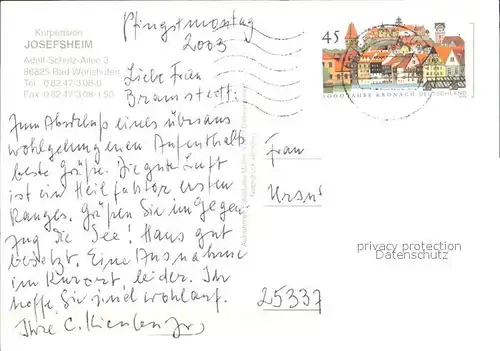 Kurpension
JOSEFSHEIM
Adolf-Scholz-Allee 3
86825 Bad Wörishofen
Tel. 0 82 47/3 08-0
Fax 0 82 47/3 08-1 50
Pfingstmontag
2003
Liebe Frau
Bramstedt!
Zum Abschluß eines überaus
wohlgelungenen Aufenthalts
beste Grüße. Die gute Luft
ist ein Heilfaktor ersten
Ranges. Grüßen Sie im Gegen-
zug die See! Haus gut
besetzt. Eine Ausnahme
im Kurort, leider. Ich
hoffe, Sie sind wohlauf.
Ihre C.
45
1000 JAHRE KRONACH DEUTSCHLAND
Frau
Ursu
privacy protection
Datenschutz
25337